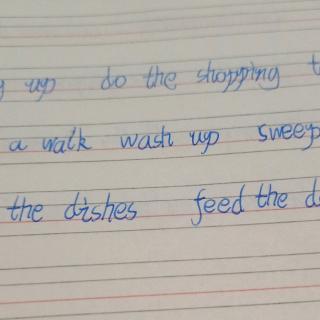 up do the shopping
a walk wash up sweep
the dishes feed the